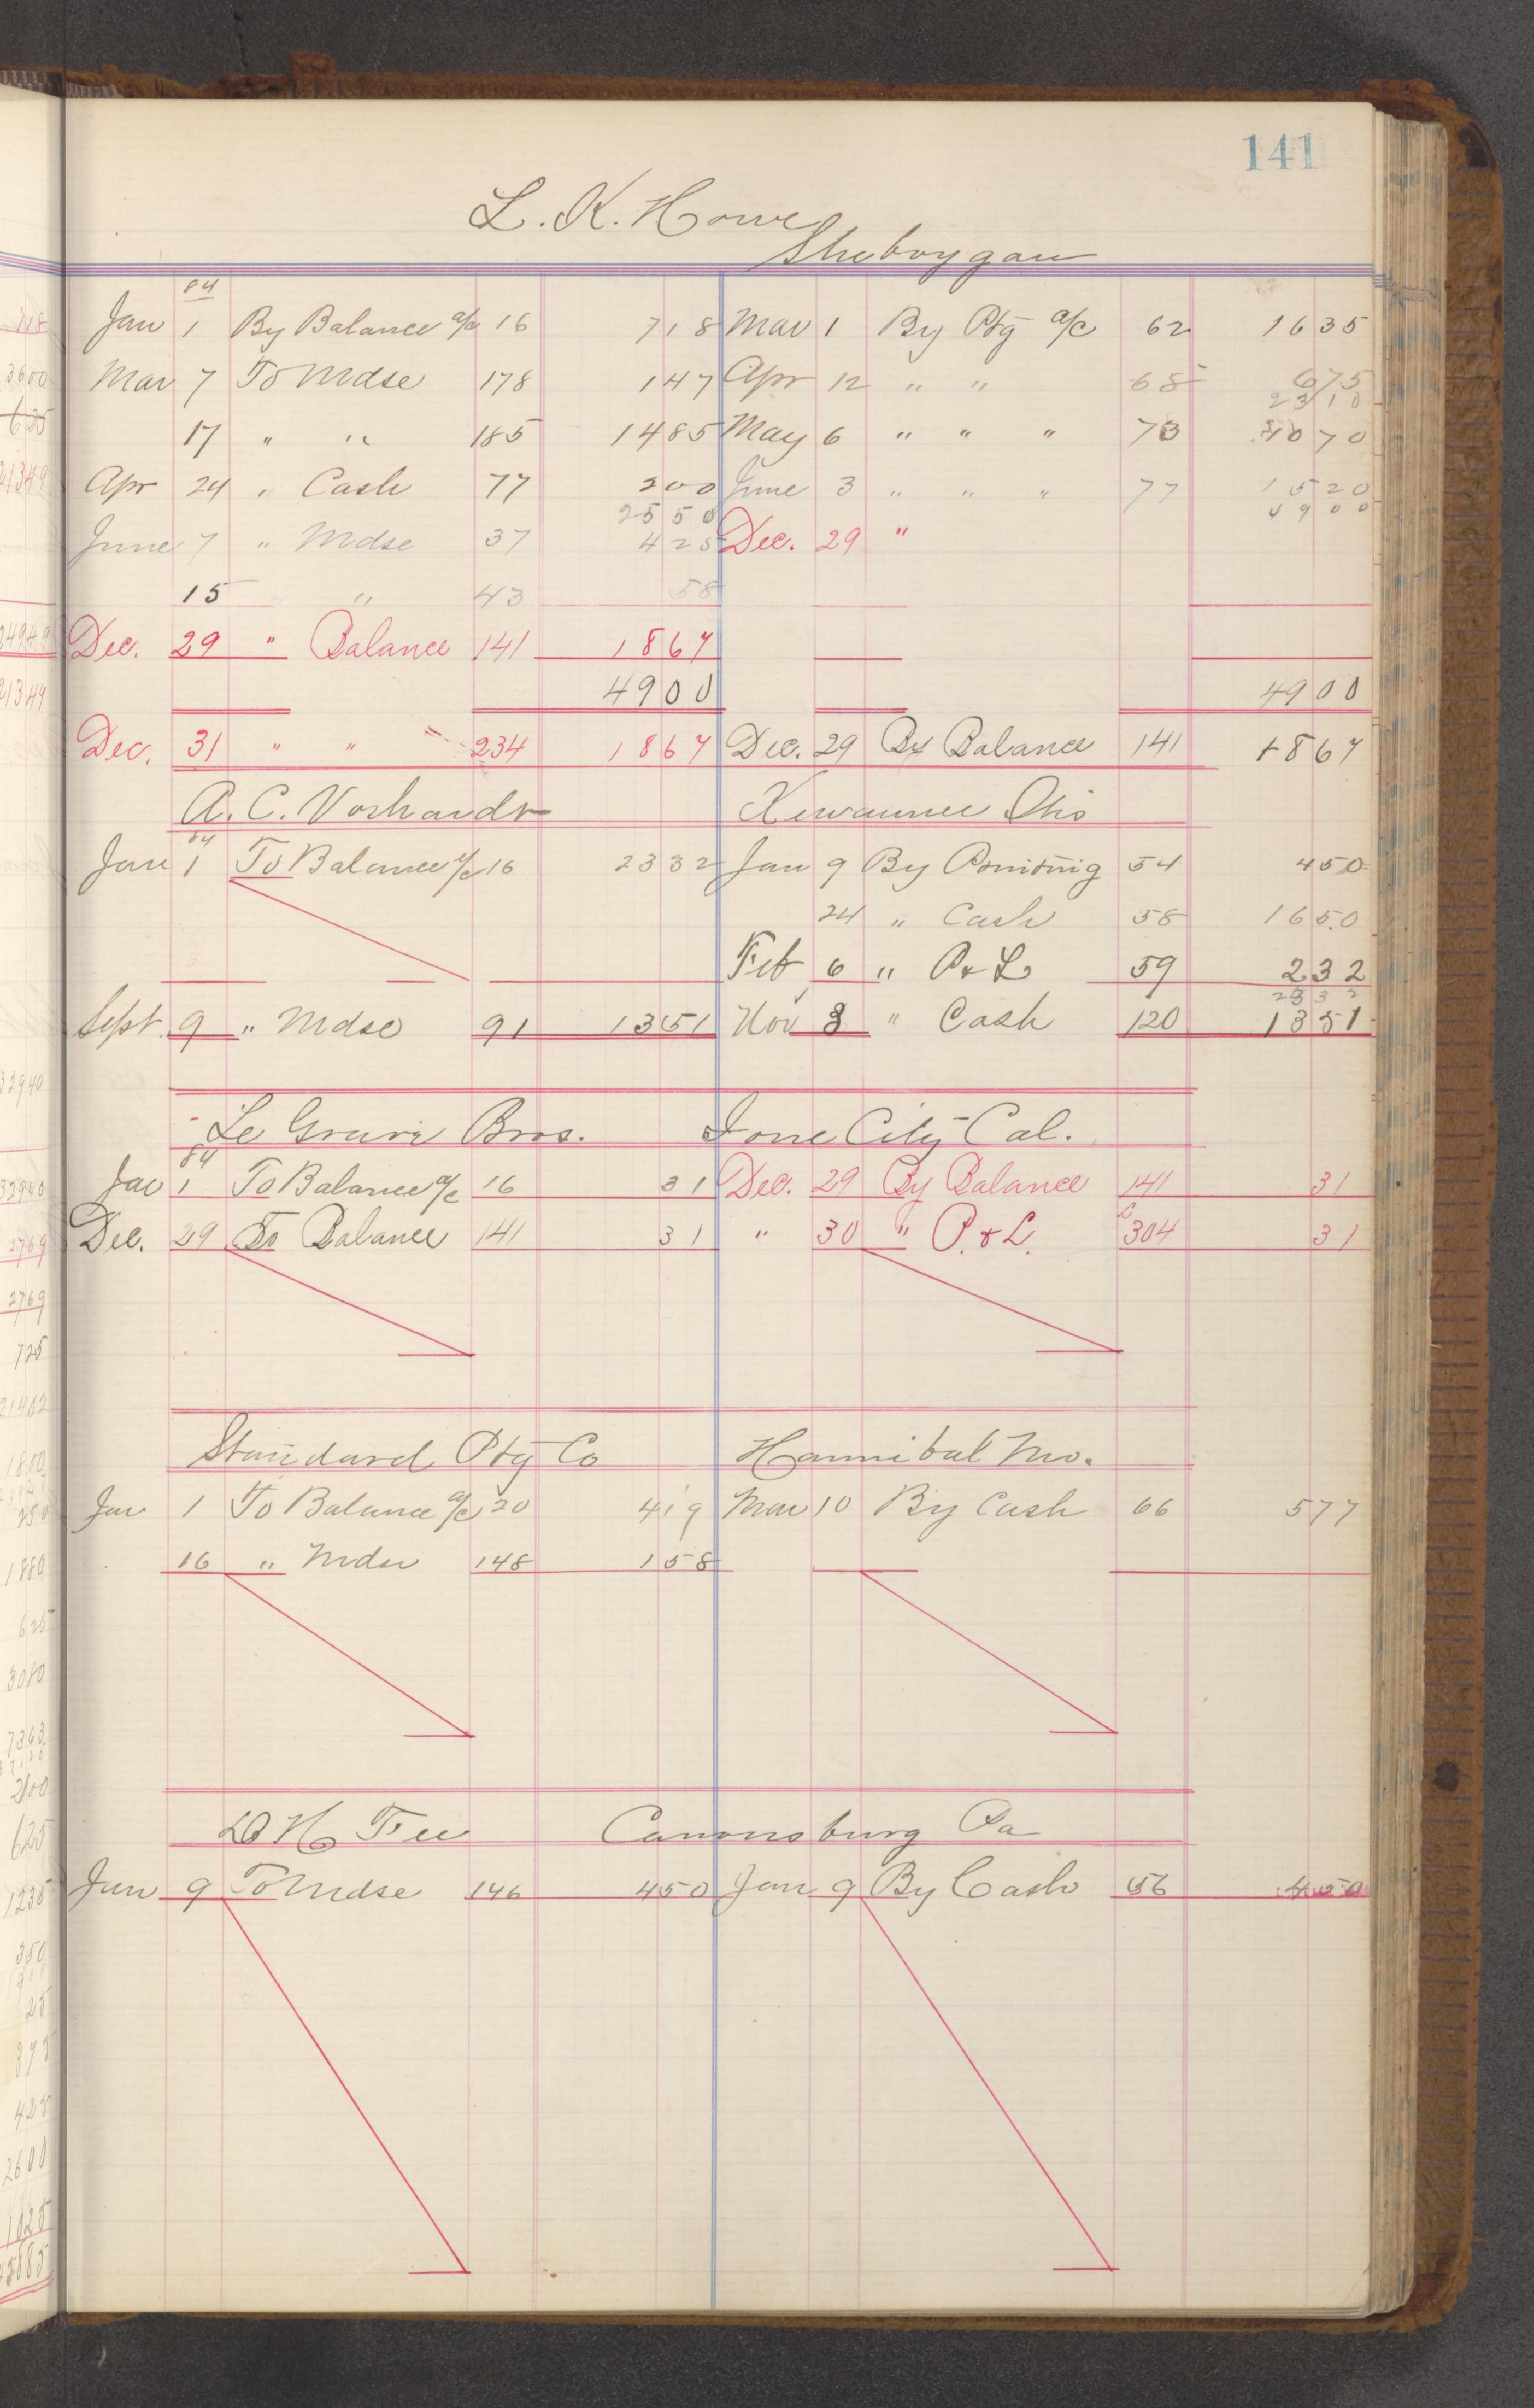 141
L. K. Howe
Sheboygan
84
Jan 1 By Balance a/c 16 718 Mar 1 By Ptg a/c 62 1635
Mar 7 To Mdse 178 147 Apr 12 " " 68 675
2310
17 " " 185 1485 May 6 " " " 73 1070
Apr 24 " Cash 77 200 June 3 " " " 77 1520
2550 4900
June 7 " Mdse 37 425 Dec. 29 "
15 " 43 58
Dec. 29 " Balance 141 1867
4900 4900
Dec. 31 " " 234 1867 Dec. 29 By Balance 141 1867
A. C. Vorhandt Kewaunee Ohio
84
Jan 1 To Balance a/c 16 2332 Jan 9 By Printing 54 450
24 " Cash 58 1650
Feb 6 " P & L 59 232
2332
Sept 9 " Mdse 91 1351 Nov 3 " Cash 120 1351
Le Bros. Ione City Cal.
84
Jan 1 To Balance a/c 16 31 Dec. 29 By Balance 141 31
Dec. 29 To Balance 141 31 " 30 " P. & L. 304 31
Standard Ptg Co Hannibal Mo.
Jan 1 To Balance a/c 20 419 Mar 10 By Cash 66 577
16 " Mdse 148 158
D H Fee Canonsburg Pa
Jan 9 To Mdse 146 450 Jan 9 By Cash 56 450